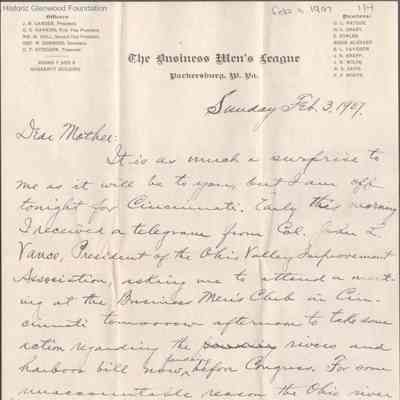 Historic Glenwood Foundation
Feb 3, 1907 1/4
Officers
President
First Vice President
Second Vice President
Secretary
Treasurer
ROOMS 7 AND 8
BUILDING
Directors:
The Business Men's League
Parkersburg, W. Va.
Sunday Feb. 3, 1907.
Dear Mother:
It is as much a surprise to
me as it will be to you, but I am off
tonight for Cincinnati. Early this morning
I received a telegram from Col. John L.
Vance, President of the Ohio Valley Improvement
Association, asking me to attend a meet-
ing at the Business Men's Club in Cin-
cinnati tomorrow afternoon to take some
action regarding the rivers and
harbors bill now pending before Congress. For some
unaccountable reason the Ohio river